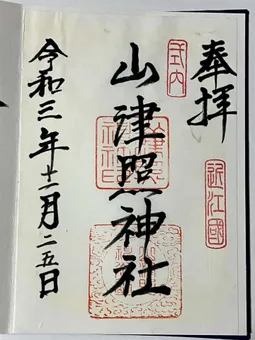 奉拝
近江國
式内
山津照神社
令和三年十一月二五日